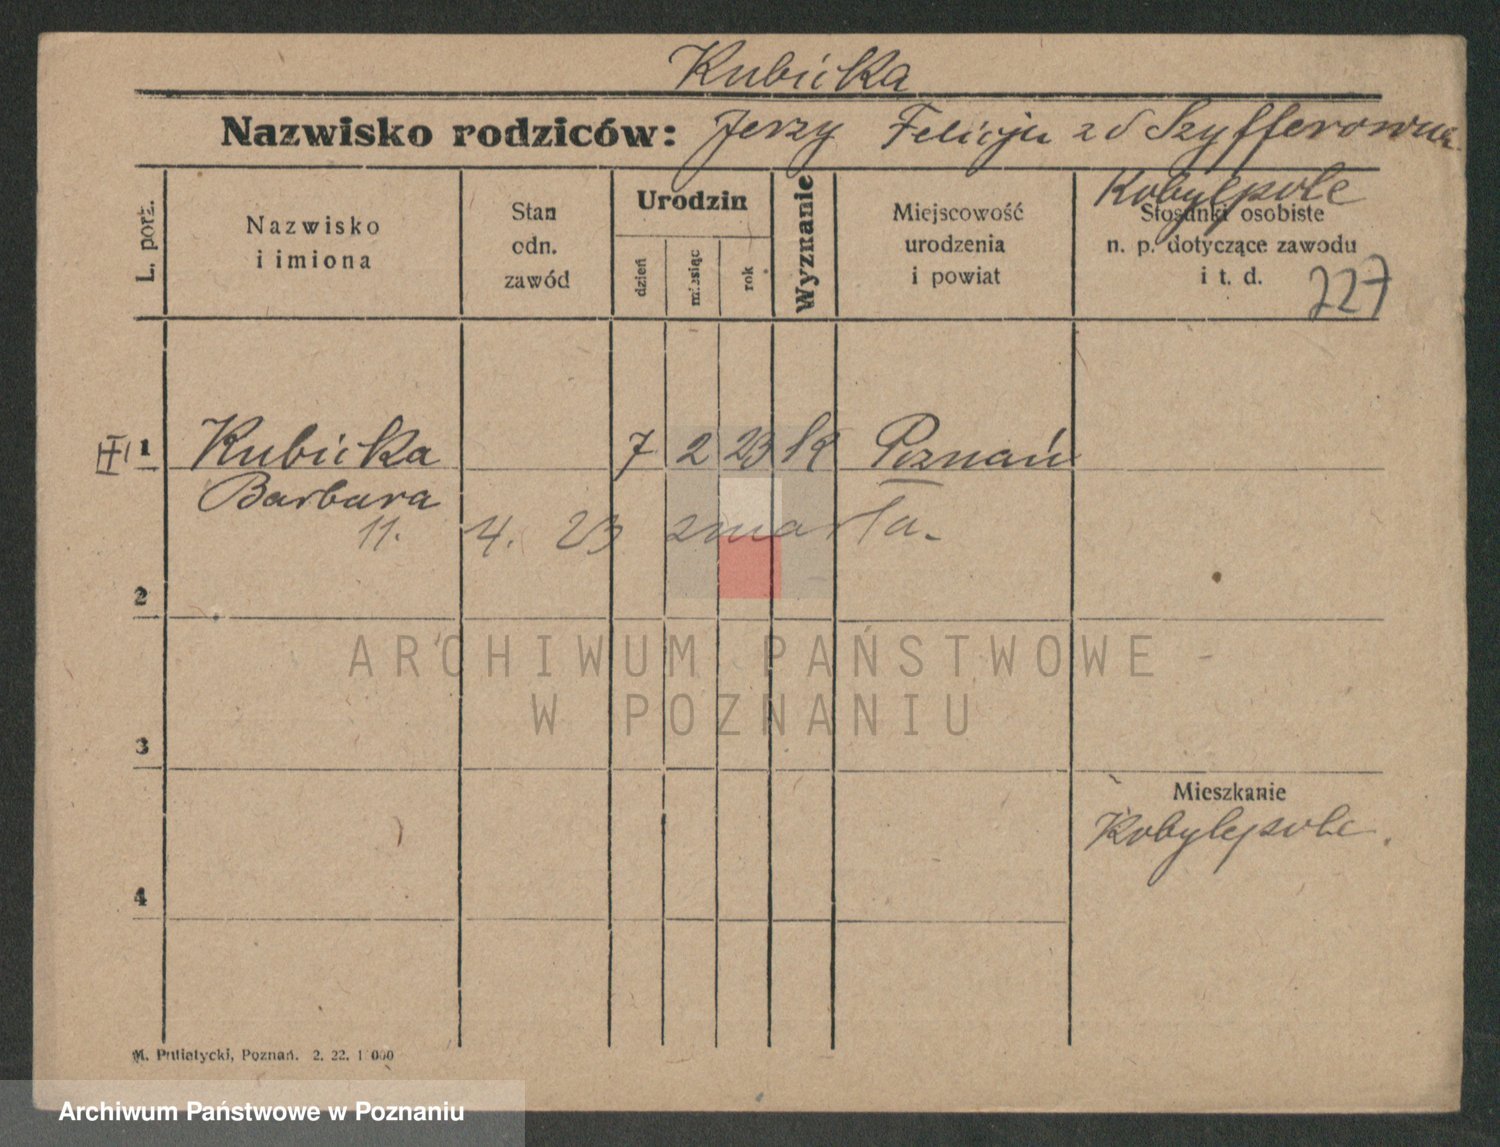 Kubicka
Nazwisko rodziców: Jerzy Felicja z d Szyfferowna
Kobylepole
L. porz.
Nazwisko
i imiona
Stan
odn.
zawód
Urodzin
dzień
miesiąc
rok
Wyznanie
Miejscowość
urodzenia
i powiat
Stosunki osobiste
n. p. dotyczące zawodu
i t. d.
227
1 Kubicka 7 2 23 K Poznań
Barbara
11. 4. 23 zmarła.
2
3
4
Mieszkanie
Kobylepole.
ARCHIWUM PAŃSTWOWE
W POZNANIU
M. Putiatycki, Poznań. 2. 22.
Archiwum Państwowe w Poznaniu